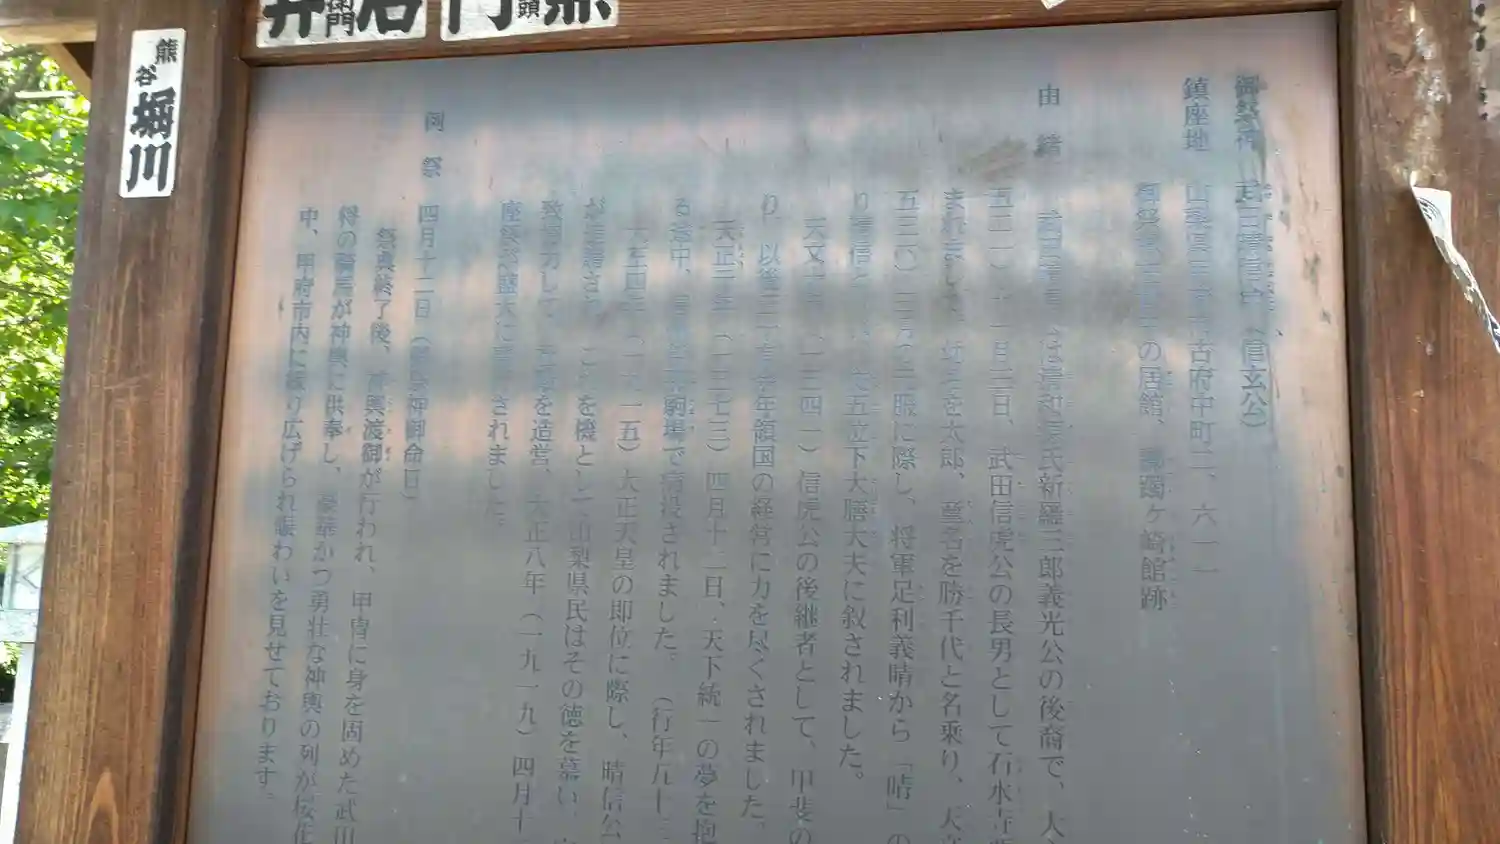 熊谷堀川
御祭神 武田晴信公(信玄公)
鎮座地 山梨県甲府市古府中町二、六一一
御祭神三代の居館、躑躅ヶ崎館跡
由緒 武田信玄公は清和源氏新羅三郎義光公の後裔で、大
五二一)十一月三日、武田信虎公の長男として石水寺
まれました。幼名を太郎、童名を勝千代と名乗り、天文
五三六)三月元服に際し、将軍足利義晴から「晴」の
り晴信とし、従五位下大膳大夫に叙されました。
天文十年(一五四一)信虎公の後継者として、甲斐の
り、以後三十有余年領国の経営に力を尽くされました。
天正元年(一五七三)四月十二日、天下統一の夢を抱
る途中、信州伊那駒場で病没されました。(行年五十三
大正四年(一九一五)大正天皇の即位に際し、晴信公
が追贈され、これを機として山梨県民はその徳を慕い、
致協力して、社殿を造営、大正八年(一九一九)四月十
座祭が盛大に斎行されました。
例祭 四月十二日(御祭神御命日)
祭典終了後、神輿渡御が行われ、甲冑に身を固めた武田
将の騎馬が神輿に供奉し、豪華かつ勇壮な神輿の列が桜花
中、甲府市内に繰り広げられ賑わいを見せております。